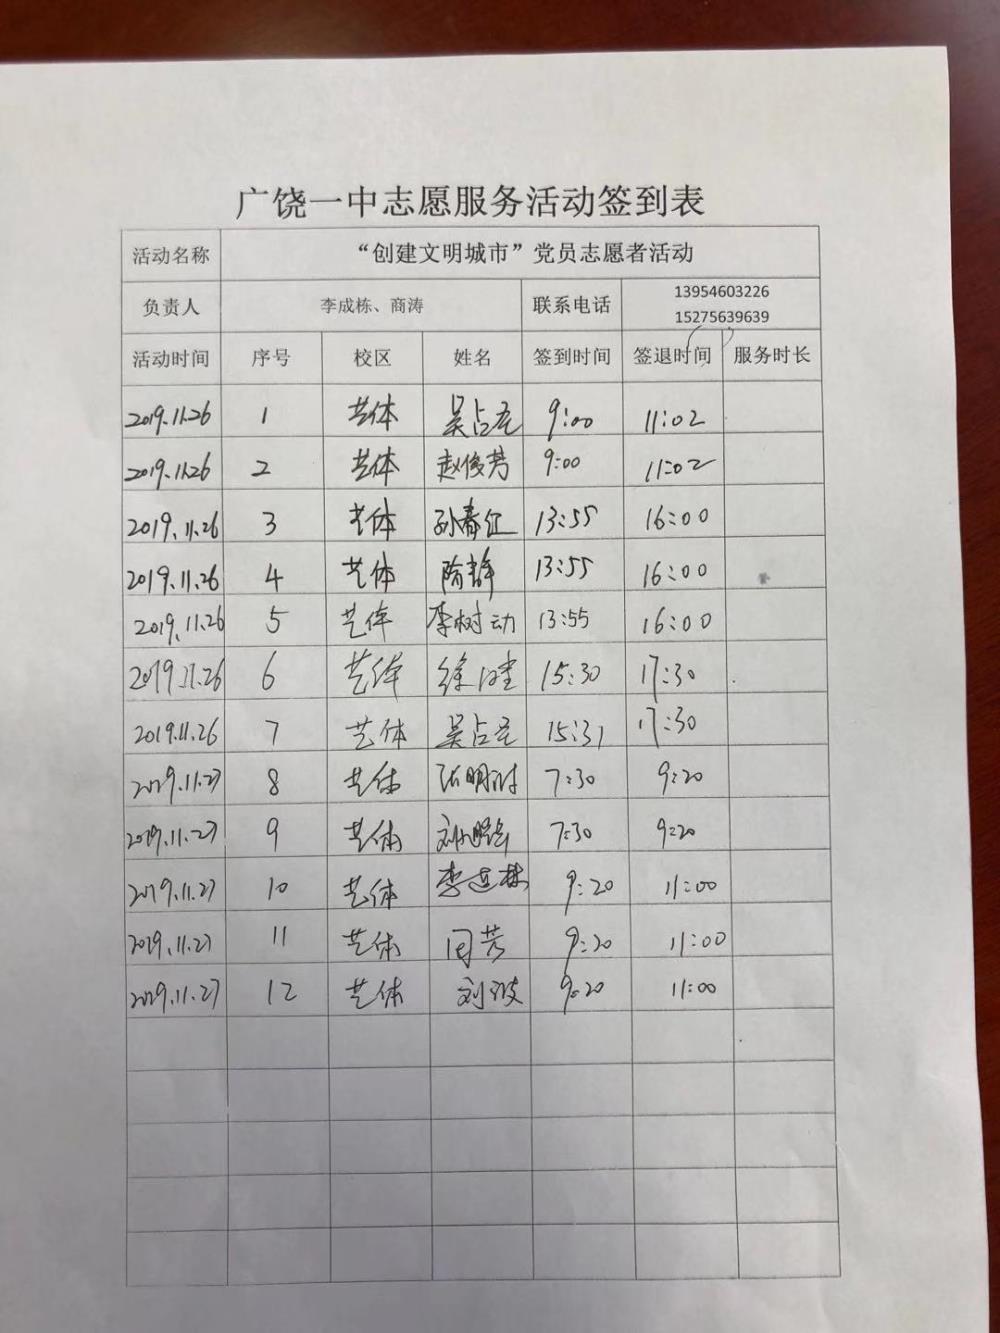 广饶一中志愿服务活动签到表
活动名称 “创建文明城市”党员志愿者活动
负责人 李成栋、商涛 联系电话 13954603226
15275639639
活动时间 序号 校区 姓名 签到时间 签退时间 服务时长
2019.11.26 1 艺体 吴占 9:00 11:02
2019.11.26 2 艺体 赵俊芳 9:00 11:02
2019.11.26 3 艺体 孙春 13:55 16:00
2019.11.26 4 艺体 隋静 13:55 16:00
2019.11.26 5 艺体 李树动 13:55 16:00
2019.11.26 6 艺体 徐 15:30 17:30
2019.11.26 7 艺体 吴占 15:31 17:30
2019.11.27 8 艺体 张明 7:30 9:20
2019.11.27 9 艺体 刘 7:30 9:20
2019.11.27 10 艺体 李 9:20 11:00
2019.11.27 11 艺体 闫芳 9:20 11:00
2019.11.27 12 艺体 刘波 9:20 11:00